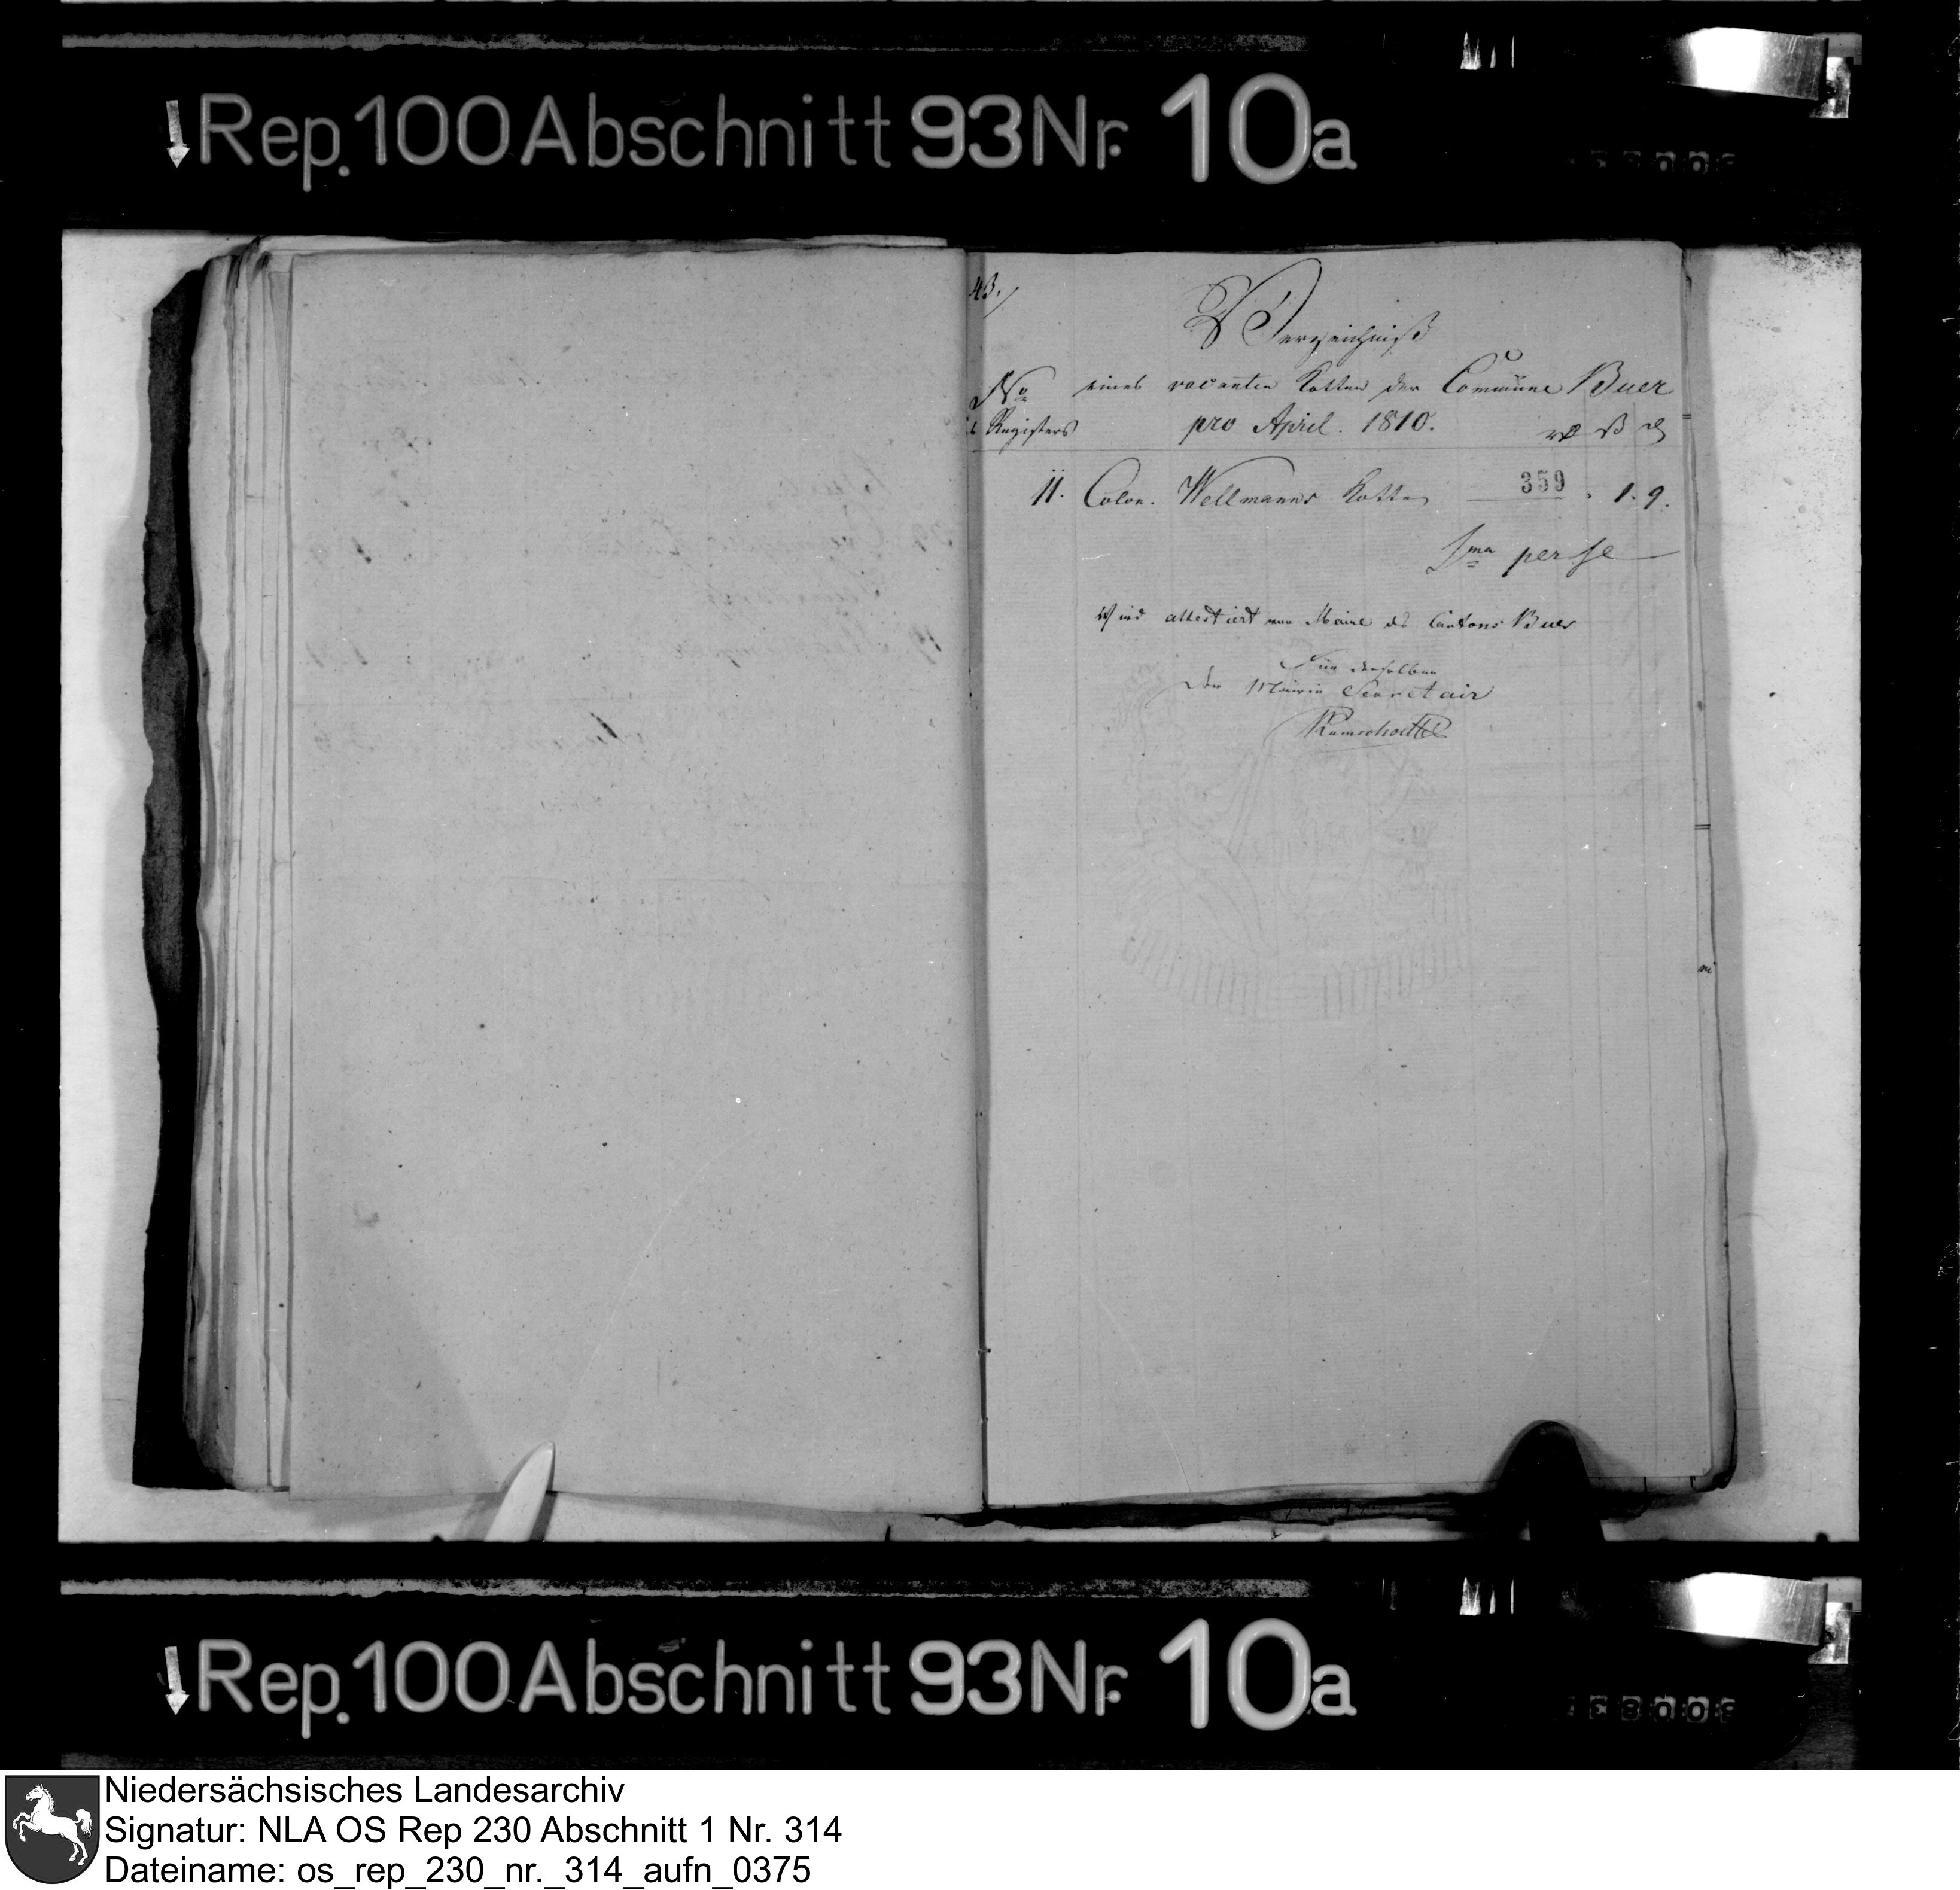 Rep. 100 Abschnitt 93 Nr. 10a
43.
Verzeichniß
No eines vacanten Kotten der Commüne Buer
Registers pro April. 1810. rt ß d
11. Colon. Wellmanns Kotten 359 . 1. 9.
Sma per se
Wird attestirt vom Maire des Cantons Buer
Für denselben
Der Mairie Secretair
Rep. 100 Abschnitt 93 Nr. 10a
Niedersächsisches Landesarchiv
Signatur: NLA OS Rep 230 Abschnitt 1 Nr. 314
Dateiname: os_rep_230_nr._314_aufn_0375